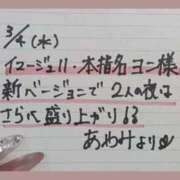 3/4(水)
イメージュ11・本指名ヨニ様
新バージョンで2人の夜は
さらに盛り上がり63
あゆみより